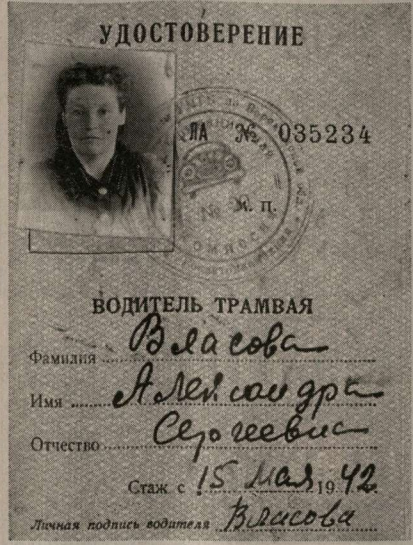 УДОСТОВЕРЕНИЕ
ЛА № 035234
М. П.
ВОДИТЕЛЬ ТРАМВАЯ
Фамилия Власова
Имя Александра
Отчество Сергеевна
Стаж с 15 Мая 1942
Личная подпись водителя Власова